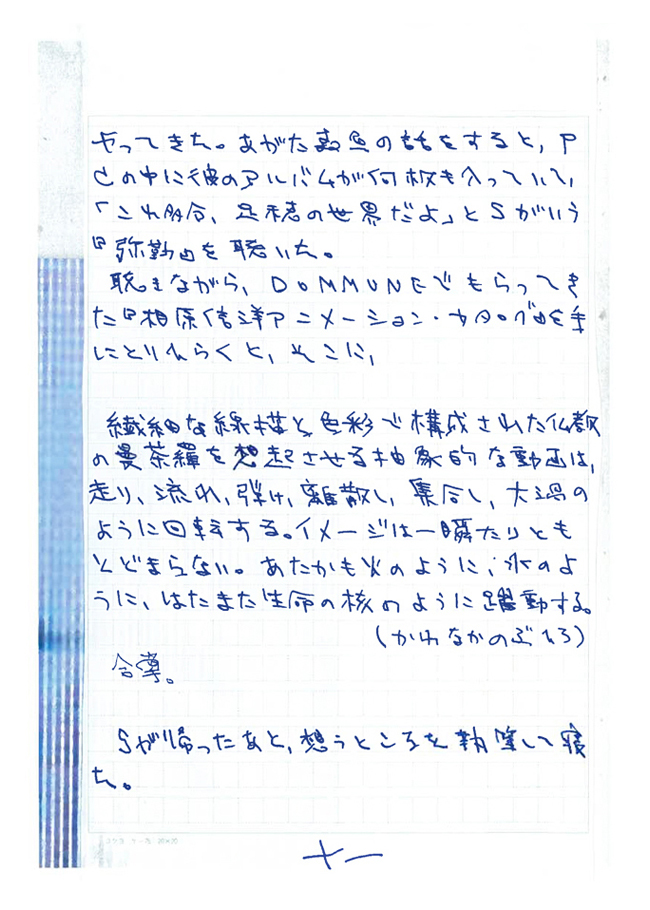 やってきた。あがた森魚の話をすると、P
Cの中に彼のアルバムが何枚も入っていて、
「これ多分、足穂の世界だよ」とSがいう
『弥勒』を聴いた。
聴きながら、DOMMUNEでもらってき
た『相原信洋アニメーション・カタログ』を手
にとりひらくと、そこに、
繊細な線描と色彩で構成された仏教
の曼荼羅を想起させる抽象的な動画は、
走り、流れ、弾け、離散し、集合し、大渦の
ように回転する。イメージは一瞬たりとも
とどまらない。あたかも火のように、水のよ
うに、はたまた生命の核のように躍動する。
(かわなかのぶひろ)
合掌。
Sが帰ったあと、想うところを執筆して寝
た。
コクヨ ケ-75 20×20
十一